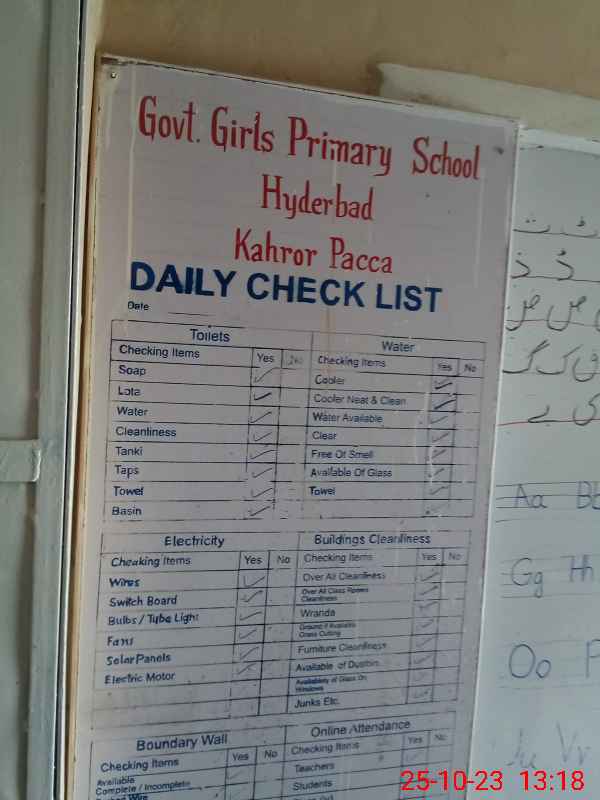 Govt. Girls Primary School
Hyderbad
Kahror Pacca
DAILY CHECK LIST
Date
Toilets
Checking Items Yes No
Soap
Lota
Water
Cleanliness
Tanki
Taps
Towel
Basin
Water
Checking Items Yes No
Cooler
Cooler Neat & Clean
Water Available
Clear
Free Of Smell
Available Of Glass
Towel
Electricity
Checking Items Yes No
Wires
Switch Board
Bulbs / Tube Light
Fans
Solar Panels
Electric Motor
Buildings Cleanliness
Checking Items Yes No
Over All Cleanliness
Over All Class Rooms
Cleanliness
Wranda
Ground if Available
Grass Cutting
Furniture Cleanliness
Available of Dustbin
Availability of Glass On
Windows
Junks Etc.
Boundary Wall
Checking Items Yes No
Available
Complete / Incomplete
Online Attendance
Checking Items Yes No
Teachers
Students
ٹ ث
ڈ ذ
ص ض
ق ک گ
ی ے
Aa Bb
Gg Hh
Oo P
Vv
25-10-23 13:18